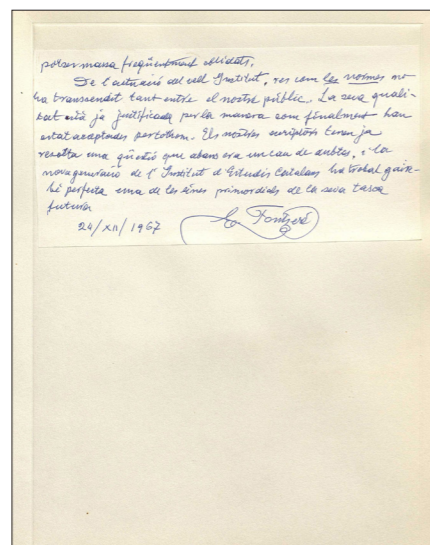 potser massa freqüentment oblidats.
De l'actuació del vell Institut, res com les normes no
ha transcendit tant entre el nostre públic. La seva quali-
tat està ja justificada per la manera com finalment han
estat acceptades per tothom. Els nostres escriptors tenen ja
resolta una qüestió que abans era un cau de dubtes, i la
nova generació de l'Institut d'Estudis Catalans ha trobat gaire-
bé perfecta una de les eines primordials de la seva tasca
futura
24/XII/1967 E Fontserè